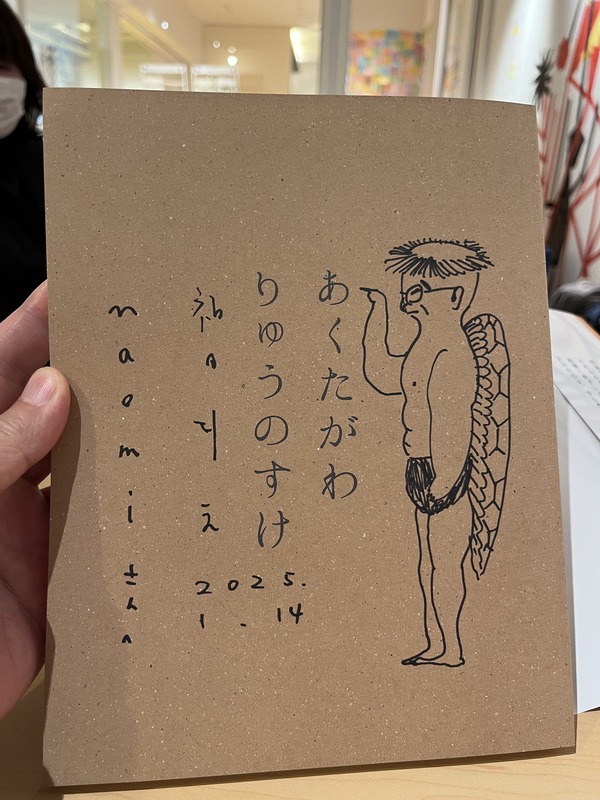 あくたがわ
りゅうのすけ
2025.
1.14
naomiさんへ